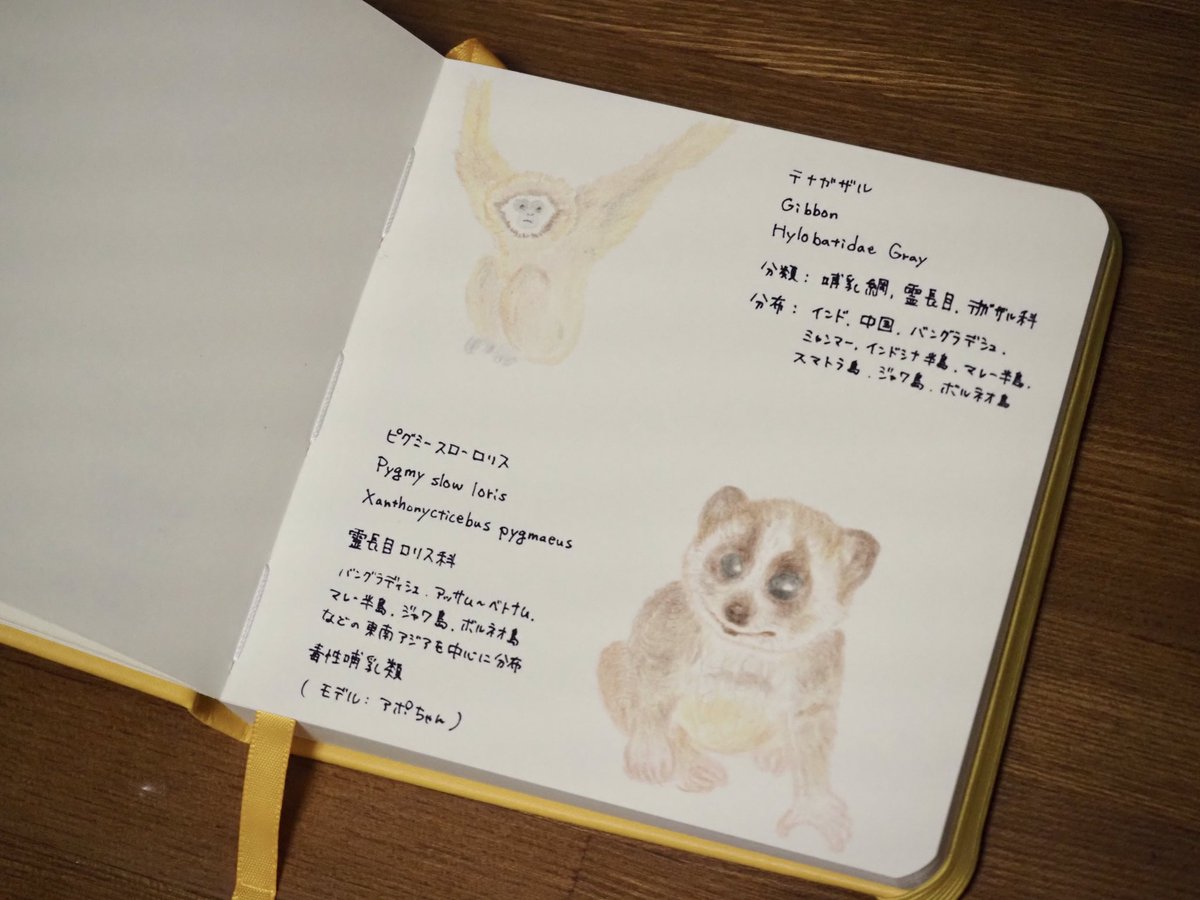 テナガザル
Gibbon
Hylobatidae Gray
分類：哺乳綱，霊長目，テナガザル科
分布：インド，中国，バングラデシュ，
ミャンマー，インドシナ半島，マレー半島，
スマトラ島，ジャワ島，ボルネオ島
ピグミースローロリス
Pygmy slow loris
Xanthonycticebus pygmaeus
霊長目ロリス科
バングラディシュ，アッサム～ベトナム，
マレー半島，ジャワ島，ボルネオ島
などの東南アジアを中心に分布
毒性哺乳類
（モデル：アポちゃん）